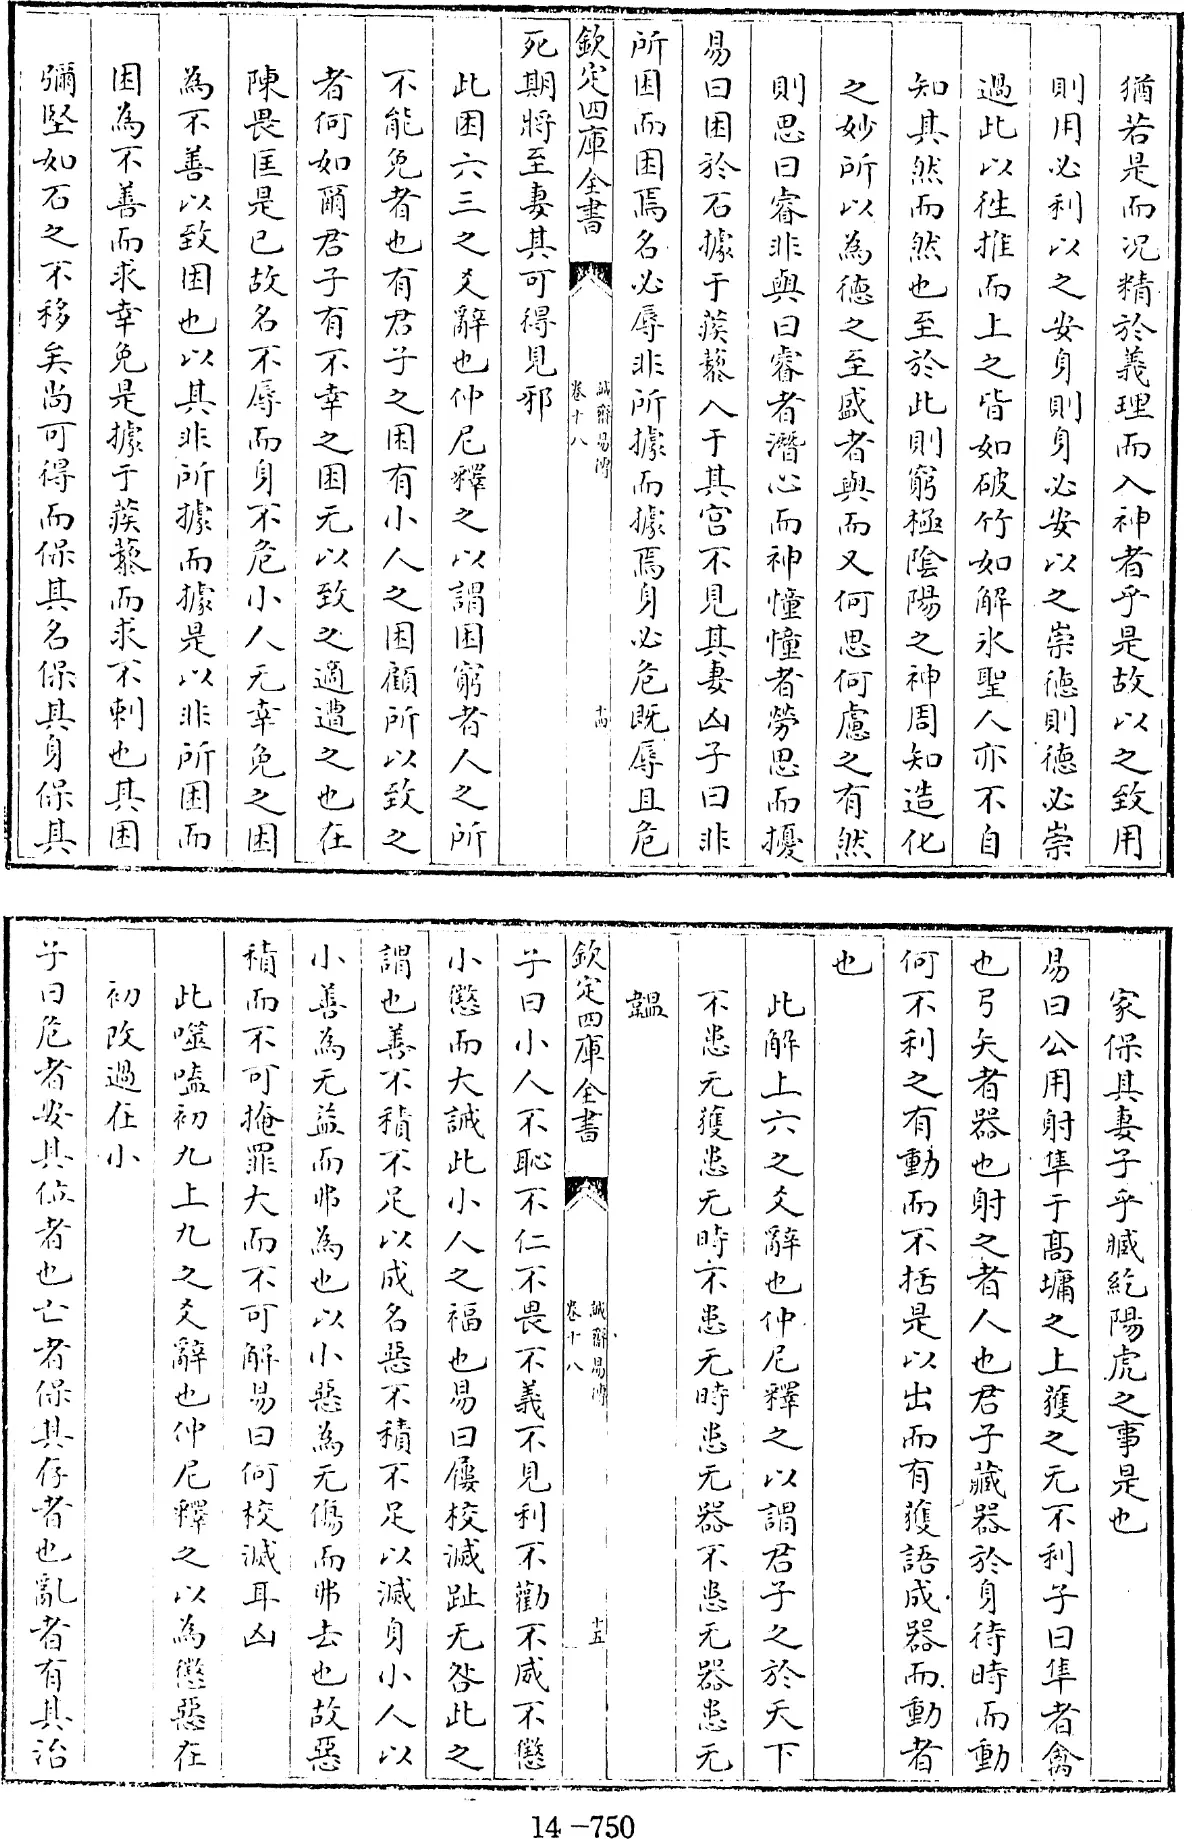 猶若是而况精於義理而入神者乎是故以之致用
則用必利以之安身則身必安以之崇德則德必崇
過此以徃推而上之皆如破竹如解氷聖人亦不自
知其然而然也至於此則窮極陰陽之神周知造化
之妙所以為德之至盛者與而又何思何慮之有然
則思曰睿非與曰睿者潛心而神憧憧者勞思而擾
易曰困於石據于蒺藜入于其宮不見其妻凶子曰非
所困而困焉名必辱非所據而據焉身必危既辱且危
欽定四庫全書
誠齋易傳
卷十八
十四
死期將至妻其可得見邪
此困六三之爻辭也仲尼釋之以謂困窮者人之所
不能免者也有君子之困有小人之困顧所以致之
者何如爾君子有不幸之困无以致之適遭之也在
陳畏匡是已故名不辱而身不危小人无幸免之困
為不善以致困也以其非所據而據是以非所困而
困為不善而求幸免是據于蒺藜而求不刺也其困
彌堅如石之不移矣尚可得而保其名保其身保其
家保其妻子乎臧紇陽虎之事是也
易曰公用射隼于髙墉之上獲之无不利子曰隼者禽
也弓矢者器也射之者人也君子藏器於身待時而動
何不利之有動而不括是以出而有獲語成器而動者
也
此解上六之爻辭也仲尼釋之以謂君子之於天下
不患无獲患无時不患无時患无器不患无器患无
韞
欽定四庫全書
誠齋易傳
卷十八
十五
子曰小人不恥不仁不畏不義不見利不勸不威不懲
小懲而大誡此小人之福也易曰屨校滅趾无咎此之
謂也善不積不足以成名惡不積不足以滅身小人以
小善為无益而弗為也以小惡為无傷而弗去也故惡
積而不可掩罪大而不可解易曰何校滅耳凶
此噬嗑初九上九之爻辭也仲尼釋之以為懲惡在
初改過在小
子曰危者安其位者也亡者保其存者也亂者有其治
14-750